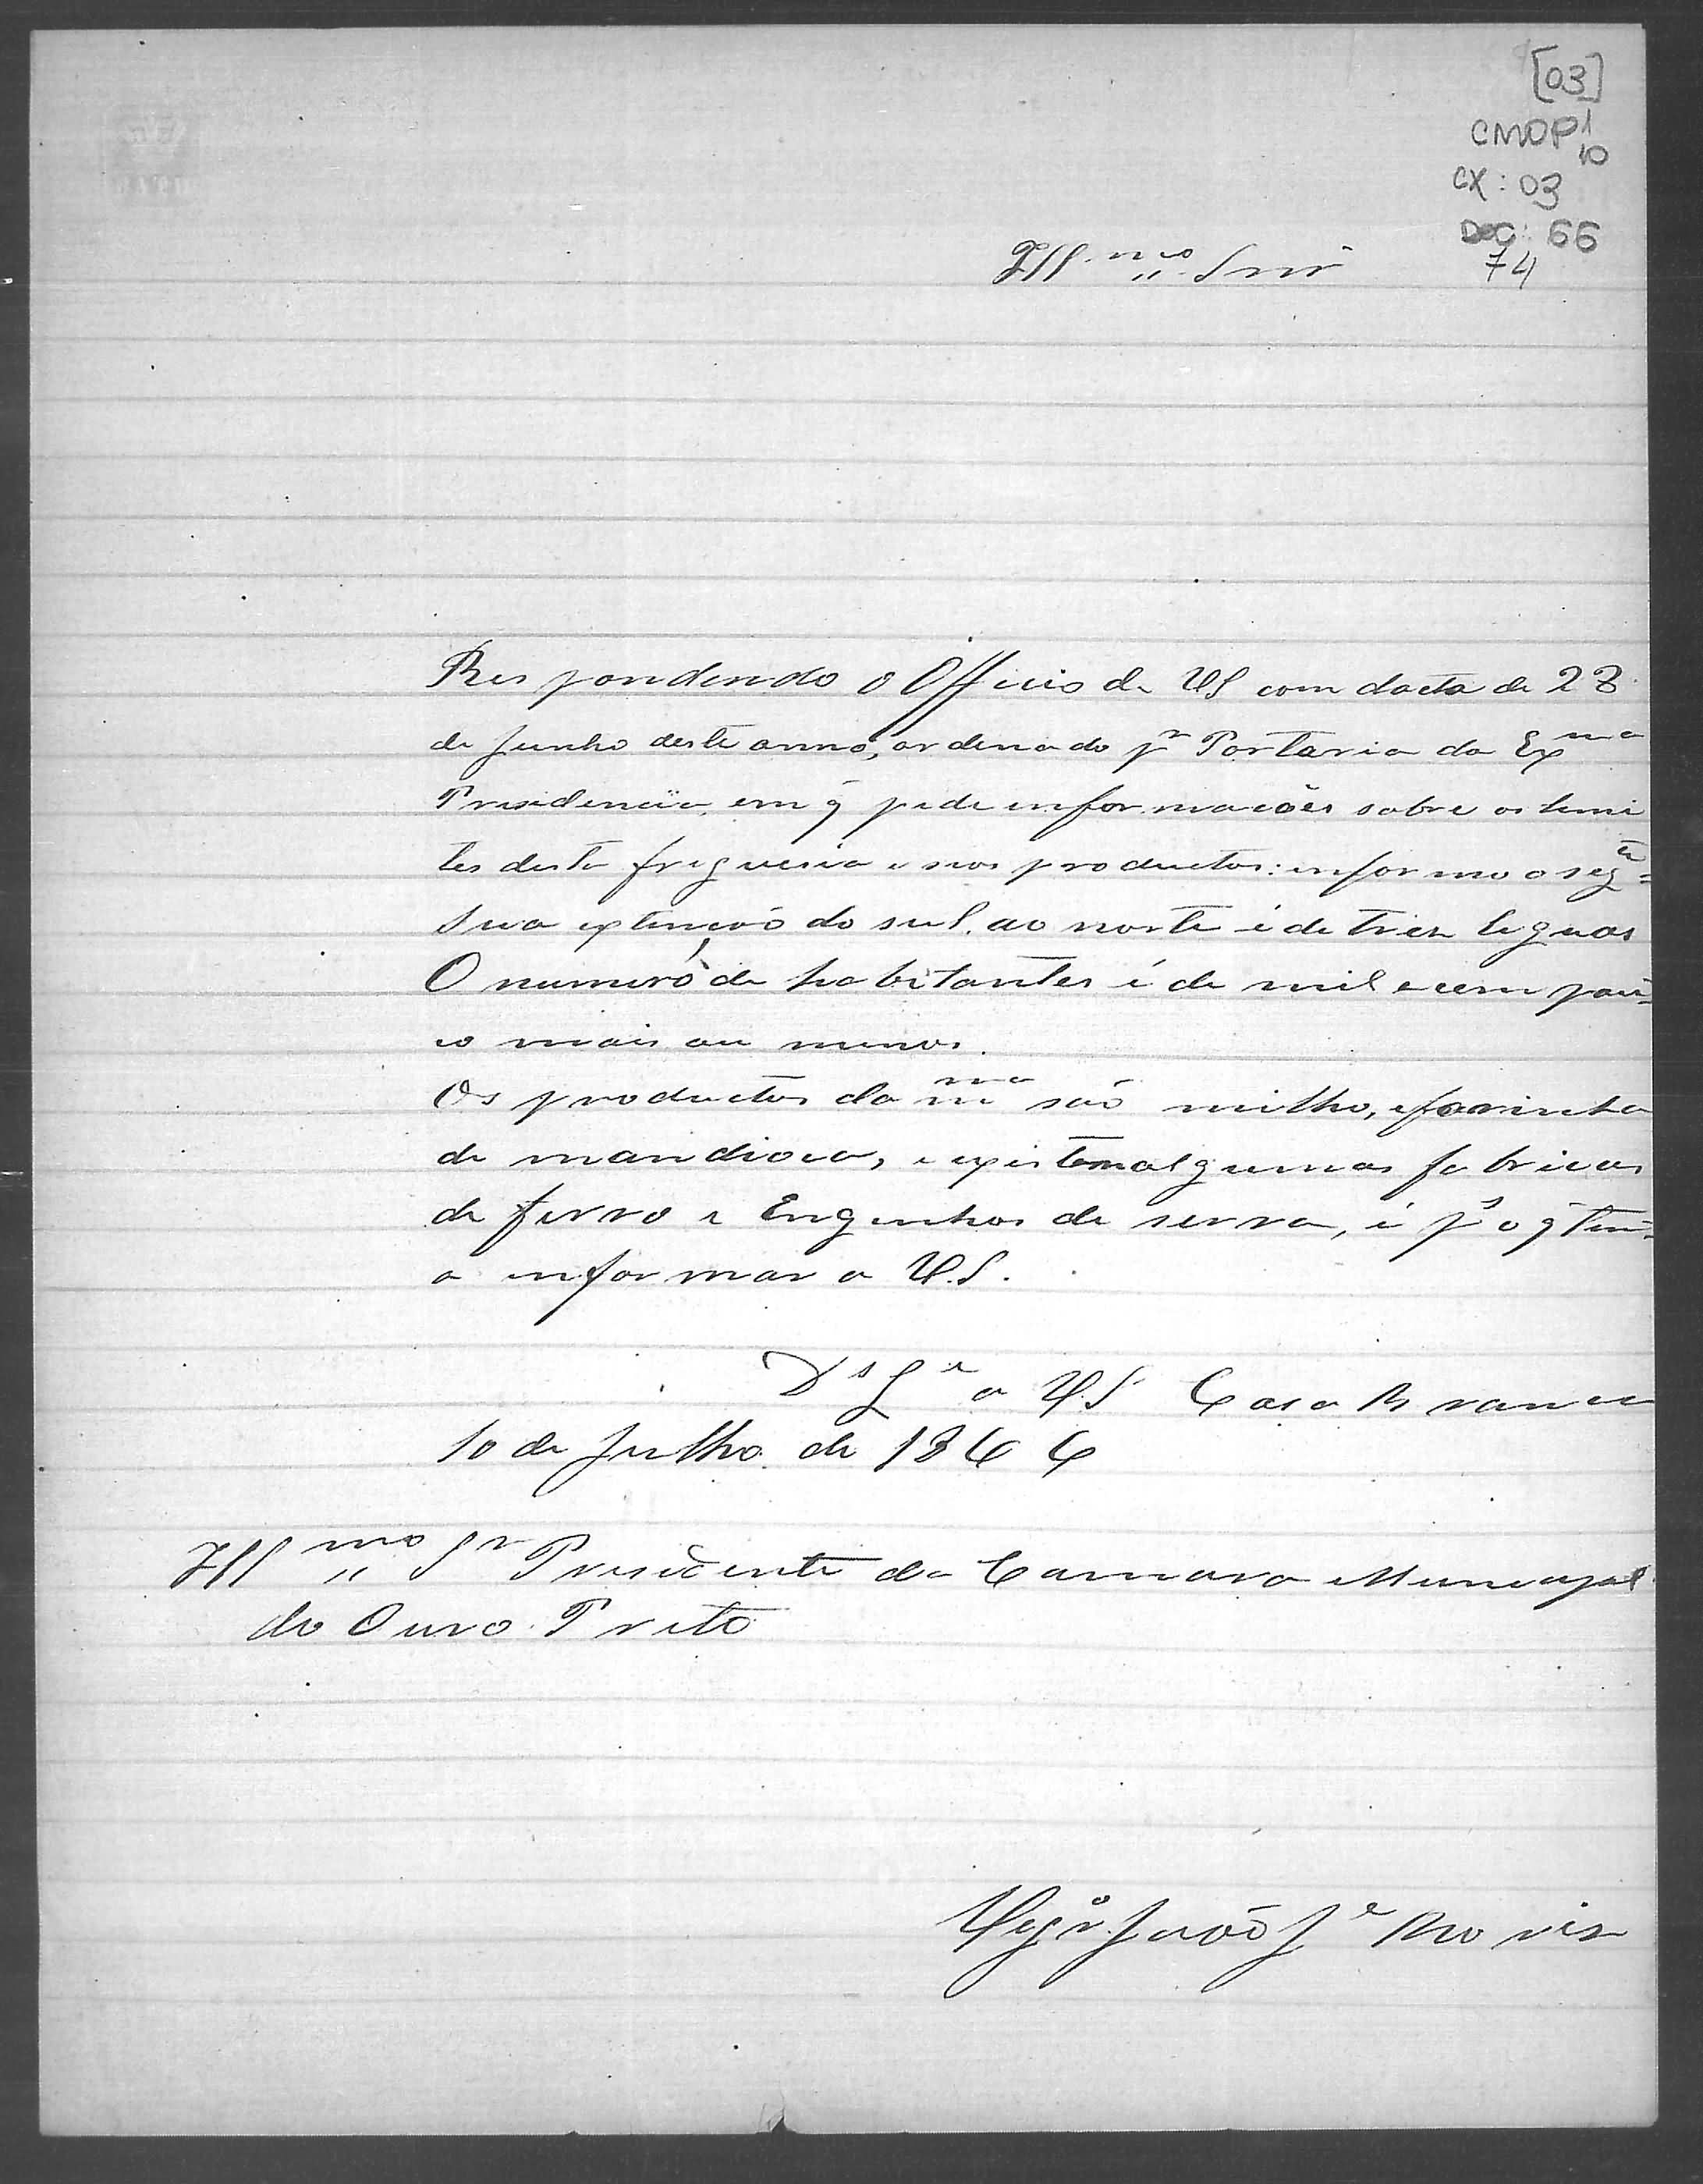 [03]
CMOP 1
10
CX: 03
DOC: 66
74
Ill.mo Snr
Respondendo o Officio de VS com dacta de 28
de Junho deste anno, ordenado pr Portaria da Exma
Presidencia, em q̃ pede informacões sobre os limi
tes desta freguesia e seos productos: informo o segte=
Sua extenção do sul ao norte é de tres leguas
O numero de habitantes é de mil e cem pou=
co mais ou menos.
Os productos da mma são milho, e farinha
de mandioca, e existem algumas fabricas
de ferro e Engenhos de serra, é po q̃ tenº
a informar a V.S.
Ds Ge a V.S Casa Branca
10 de Julho de 1866
Illmo Sr Presidente da Camara Municipal
do Ouro Preto
João Je